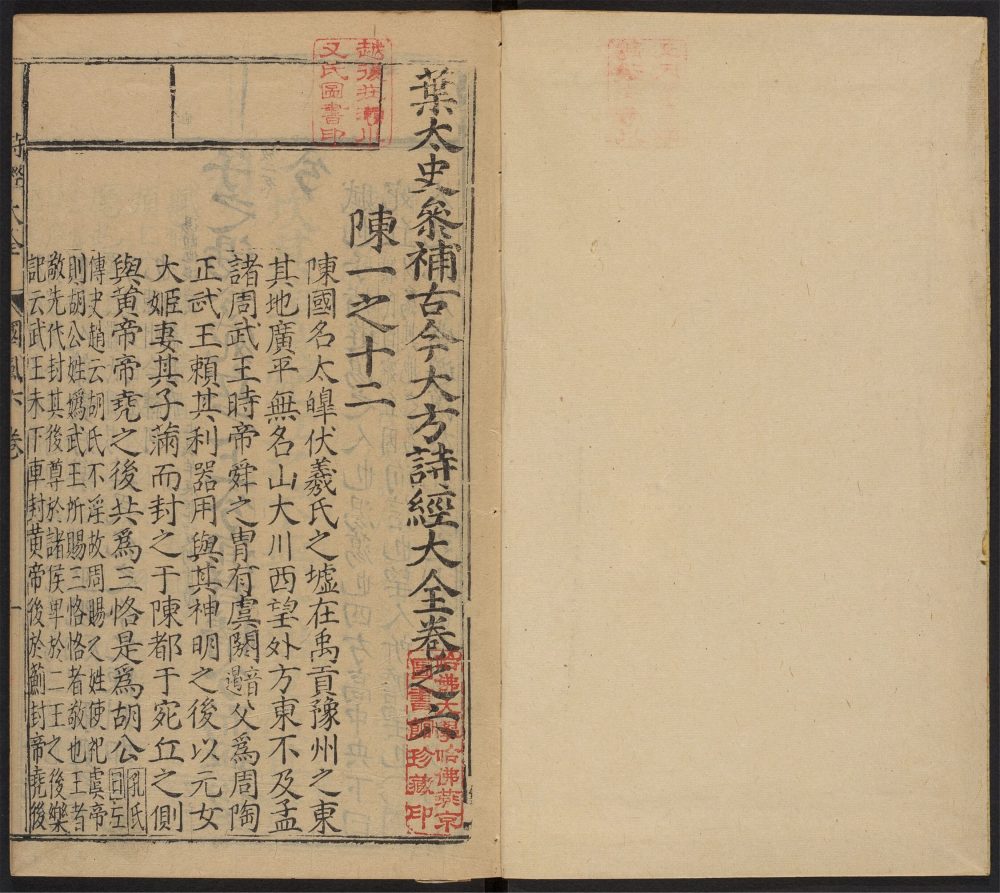 葉太史叅補古今大方詩經大全卷之六
陳一之十二
陳國名太皥伏羲氏之墟在禹貢豫州之東
其地廣平無名山大川西望外方東不及孟
諸周武王時帝舜之胄有虞閼音遏父爲周陶
正武王賴其利器用與其神明之後以元女
大姬妻其子滿而封之于陳都于宛丘之側
與黃帝帝堯之後共爲三恪是爲胡公孔氏曰左
傳史趙云胡氏不淫故周賜之姓使祀虞帝
則胡公姓嬀武王所賜三恪恪者敬也王者
敬先代封其後尊於諸侯卑於二王之後樂
記云武王未下車封黃帝後於薊封帝堯後
詩經大全 國風六卷 一
越後荘
又氏圖書印
哈佛大學哈佛燕京
圖書館珍藏印